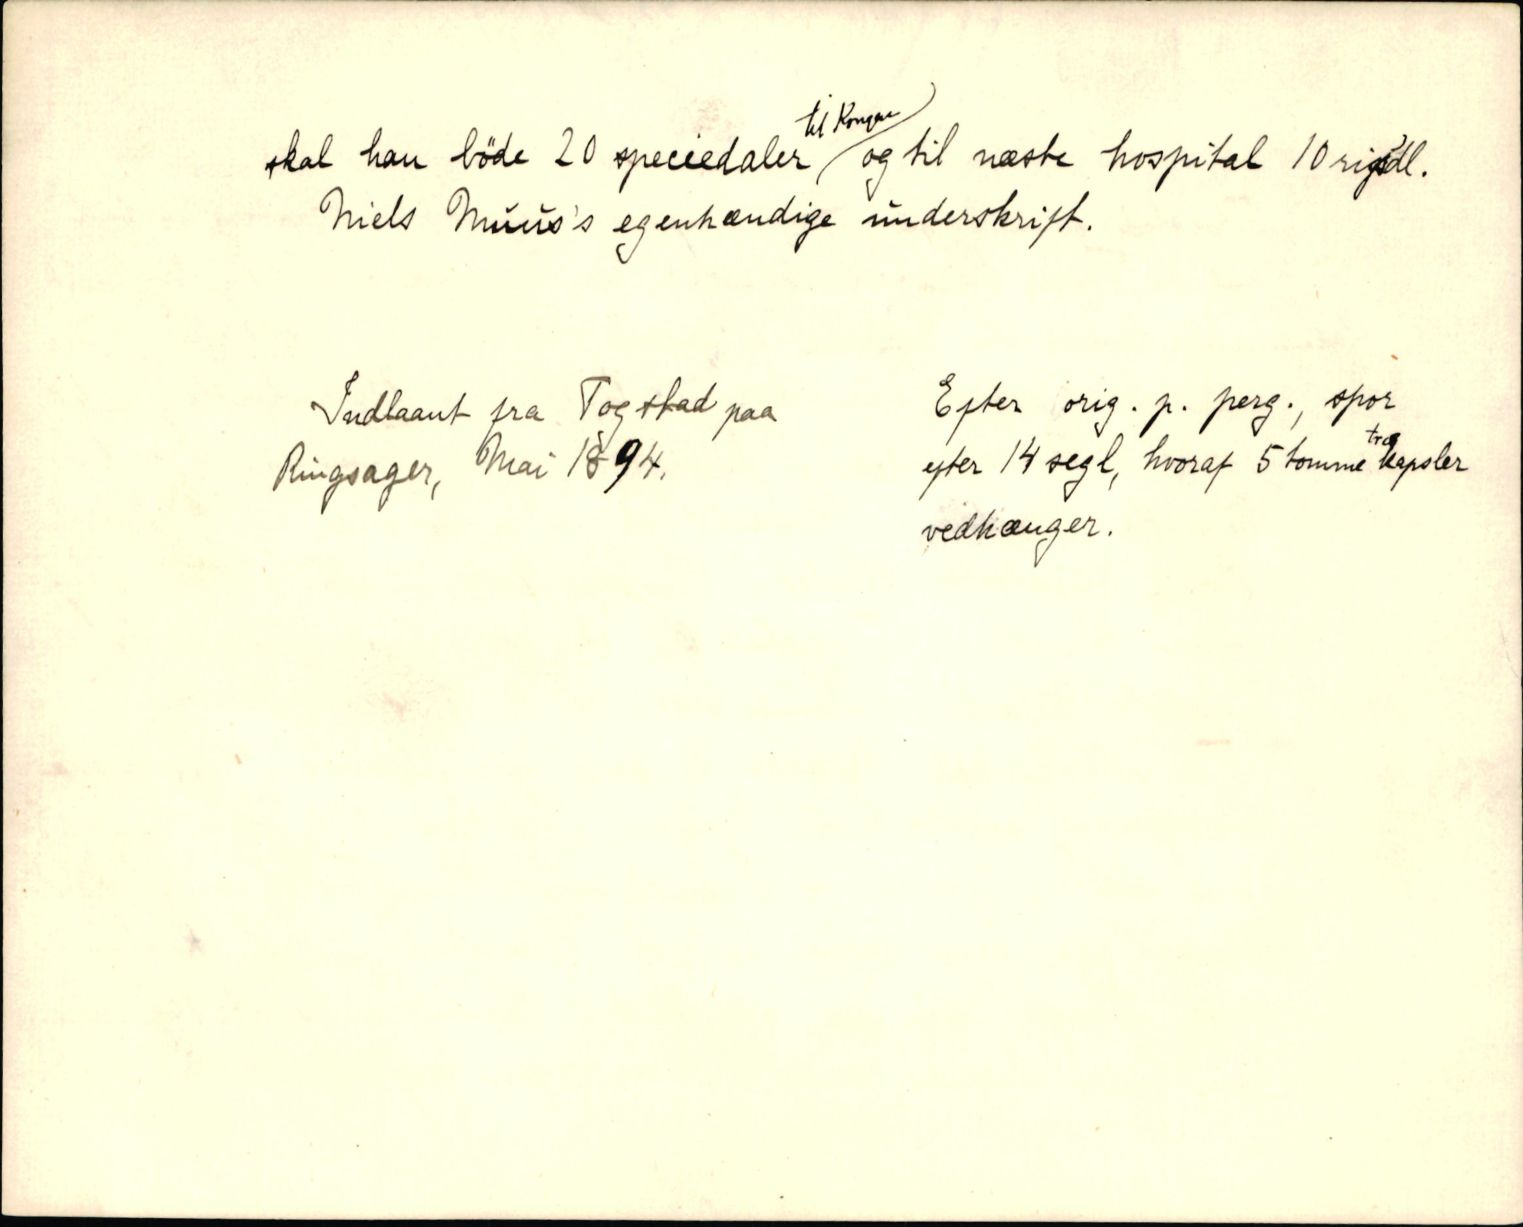 skal han böde 20 speciedaler til Kongen og til næste hospital 10 rigsdl.
Niels Muus's egenhændige underskrift.
Indlaant fra Togstad paa
Ringsager, Mai 1894.
Efter orig. p. perg., spor
efter 14 segl, hvoraf 5 tomme trækapsler
vedhænger.